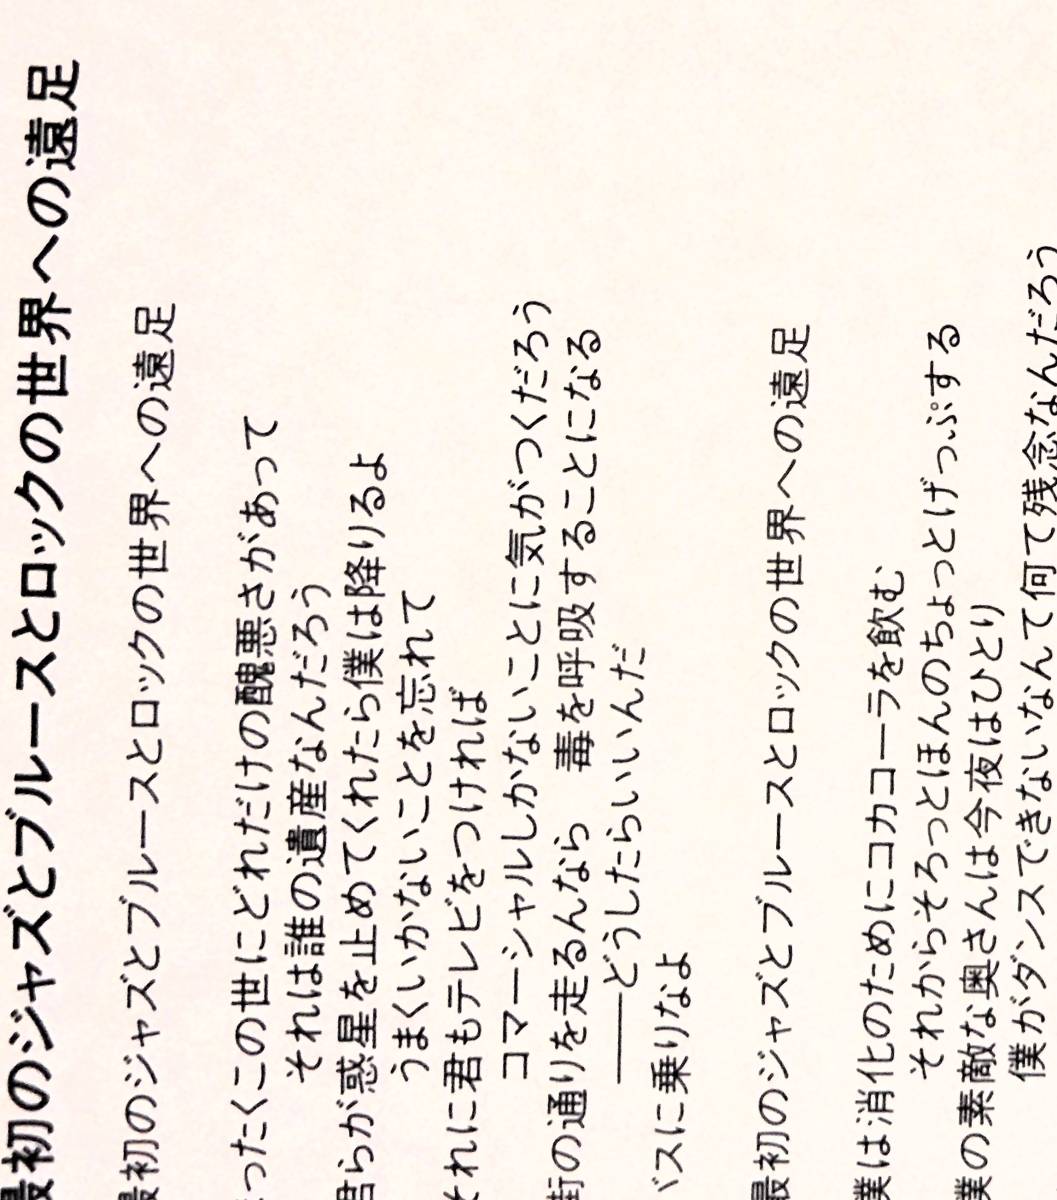 最初のジャズとブルースとロックの世界への遠足
最初のジャズとブルースとロックの世界への遠足
まったくこの世にどれだけの醜悪さがあって
それは誰の遺産なんだろう
君らが惑星を止めてくれたら僕は降りるよ
うまくいかないことを忘れて
それに君もテレビをつければ
コマーシャルしかないことに気がつくだろう
街の通りを走るんなら　毒を呼吸することになる
——どうしたらいいんだ
バスに乗りなよ
最初のジャズとブルースとロックの世界への遠足
僕は消化のためにコカコーラを飲む
それからそろっとほんのちょっとげっぷする
僕の素敵な奥さんは今夜はひとり
僕がダンスできないなんて何て残念なんだろう